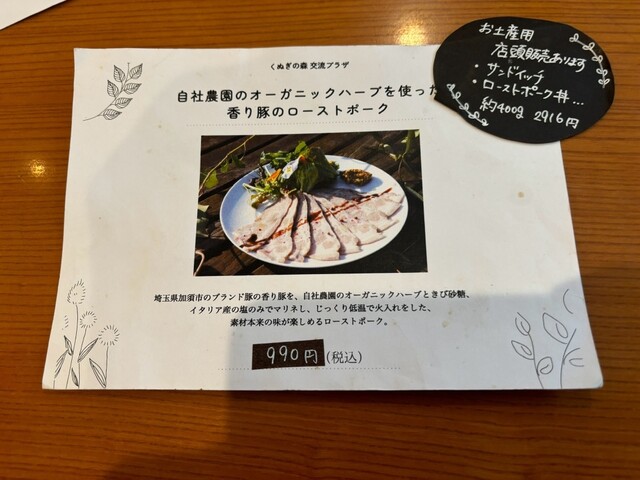 くぬぎの森 交流プラザ
自社農園のオーガニックハーブを使った
香り豚のローストポーク
埼玉県加須市のブランド豚の香り豚を、自社農園のオーガニックハーブときび砂糖、
イタリア産の塩のみでマリネし、じっくり低温で火入れをした、
素材本来の味が楽しめるローストポーク。
990円(税込)
お土産用
店頭販売あります
・サンドイッチ
・ローストポーク丼...
約400g 2916円